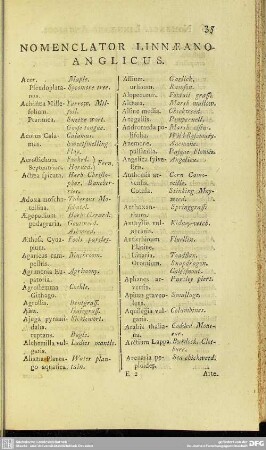 35
NOMENCLATOR LINNÆANO-
ANGLICUS.
Acer. Maple.
Pseudoplatanus. Sycamore tree.
Achillea Millefolium. Yarrow. Milfoil.
Ptarmica. Goose tongue.
Acorus Calamus. Calamus.
Acrostichum
Septentrionale. Forked Horned Fern.
Actæa spicata. Herb Christopher, Baneberries.
Adoxa moschatellina. Tuberous Moschatel.
Aegopodium podagraria. Herb Gerard. Goutweed. Ashweed.
Æthusa Cynapium. Fools parsley.
Agaricus campestris. Mushroom.
Agrimonia Eupatoria. Agrimony.
Agrostemma Githago. Cockle.
Agrostis. Bentgrass.
Aira. Hairgrass.
Ajuga pyramidalis. Sicklewort.
reptans. Bugle.
Alchemilla vulgaris. Ladies mantle.
Alisma Plantago aquatica. Water plantain.
Allium. Garlick.
ursinum. Ramson.
Alopecurus. Foxtail grass.
Althæa. Marsh mallow.
Alsine media. Chickweed.
Anagallis. Pimpernell.
Andromeda polifolia. Wild Rosemary.
Anemone. Anemone.
pulsatilla. Pasque-flower.
Angelica sylvestris. Angelica.
Anthemis arvensis. Corn Camomile.
Cotula. Stinking Mayweed.
Anthoxanthum. Springgrass.
Anthyllis vulneraria. Kidney-vetch.
Antirrhinum. Fluellin.
Elatine.
Linaria. Toadflax.
Orontium. Snapdragon. Calfsnout.
Aphanes arvensis. Parsley piert.
Apium graveolens. Smallage.
Aquilegia vulgaris. Columbines.
Arabis thaliana. Codded Mouseear.
Arctium Lappa. Burdock. Clotburr.
Arenaria peploides. Sea chickweed.
E 2 Arte.